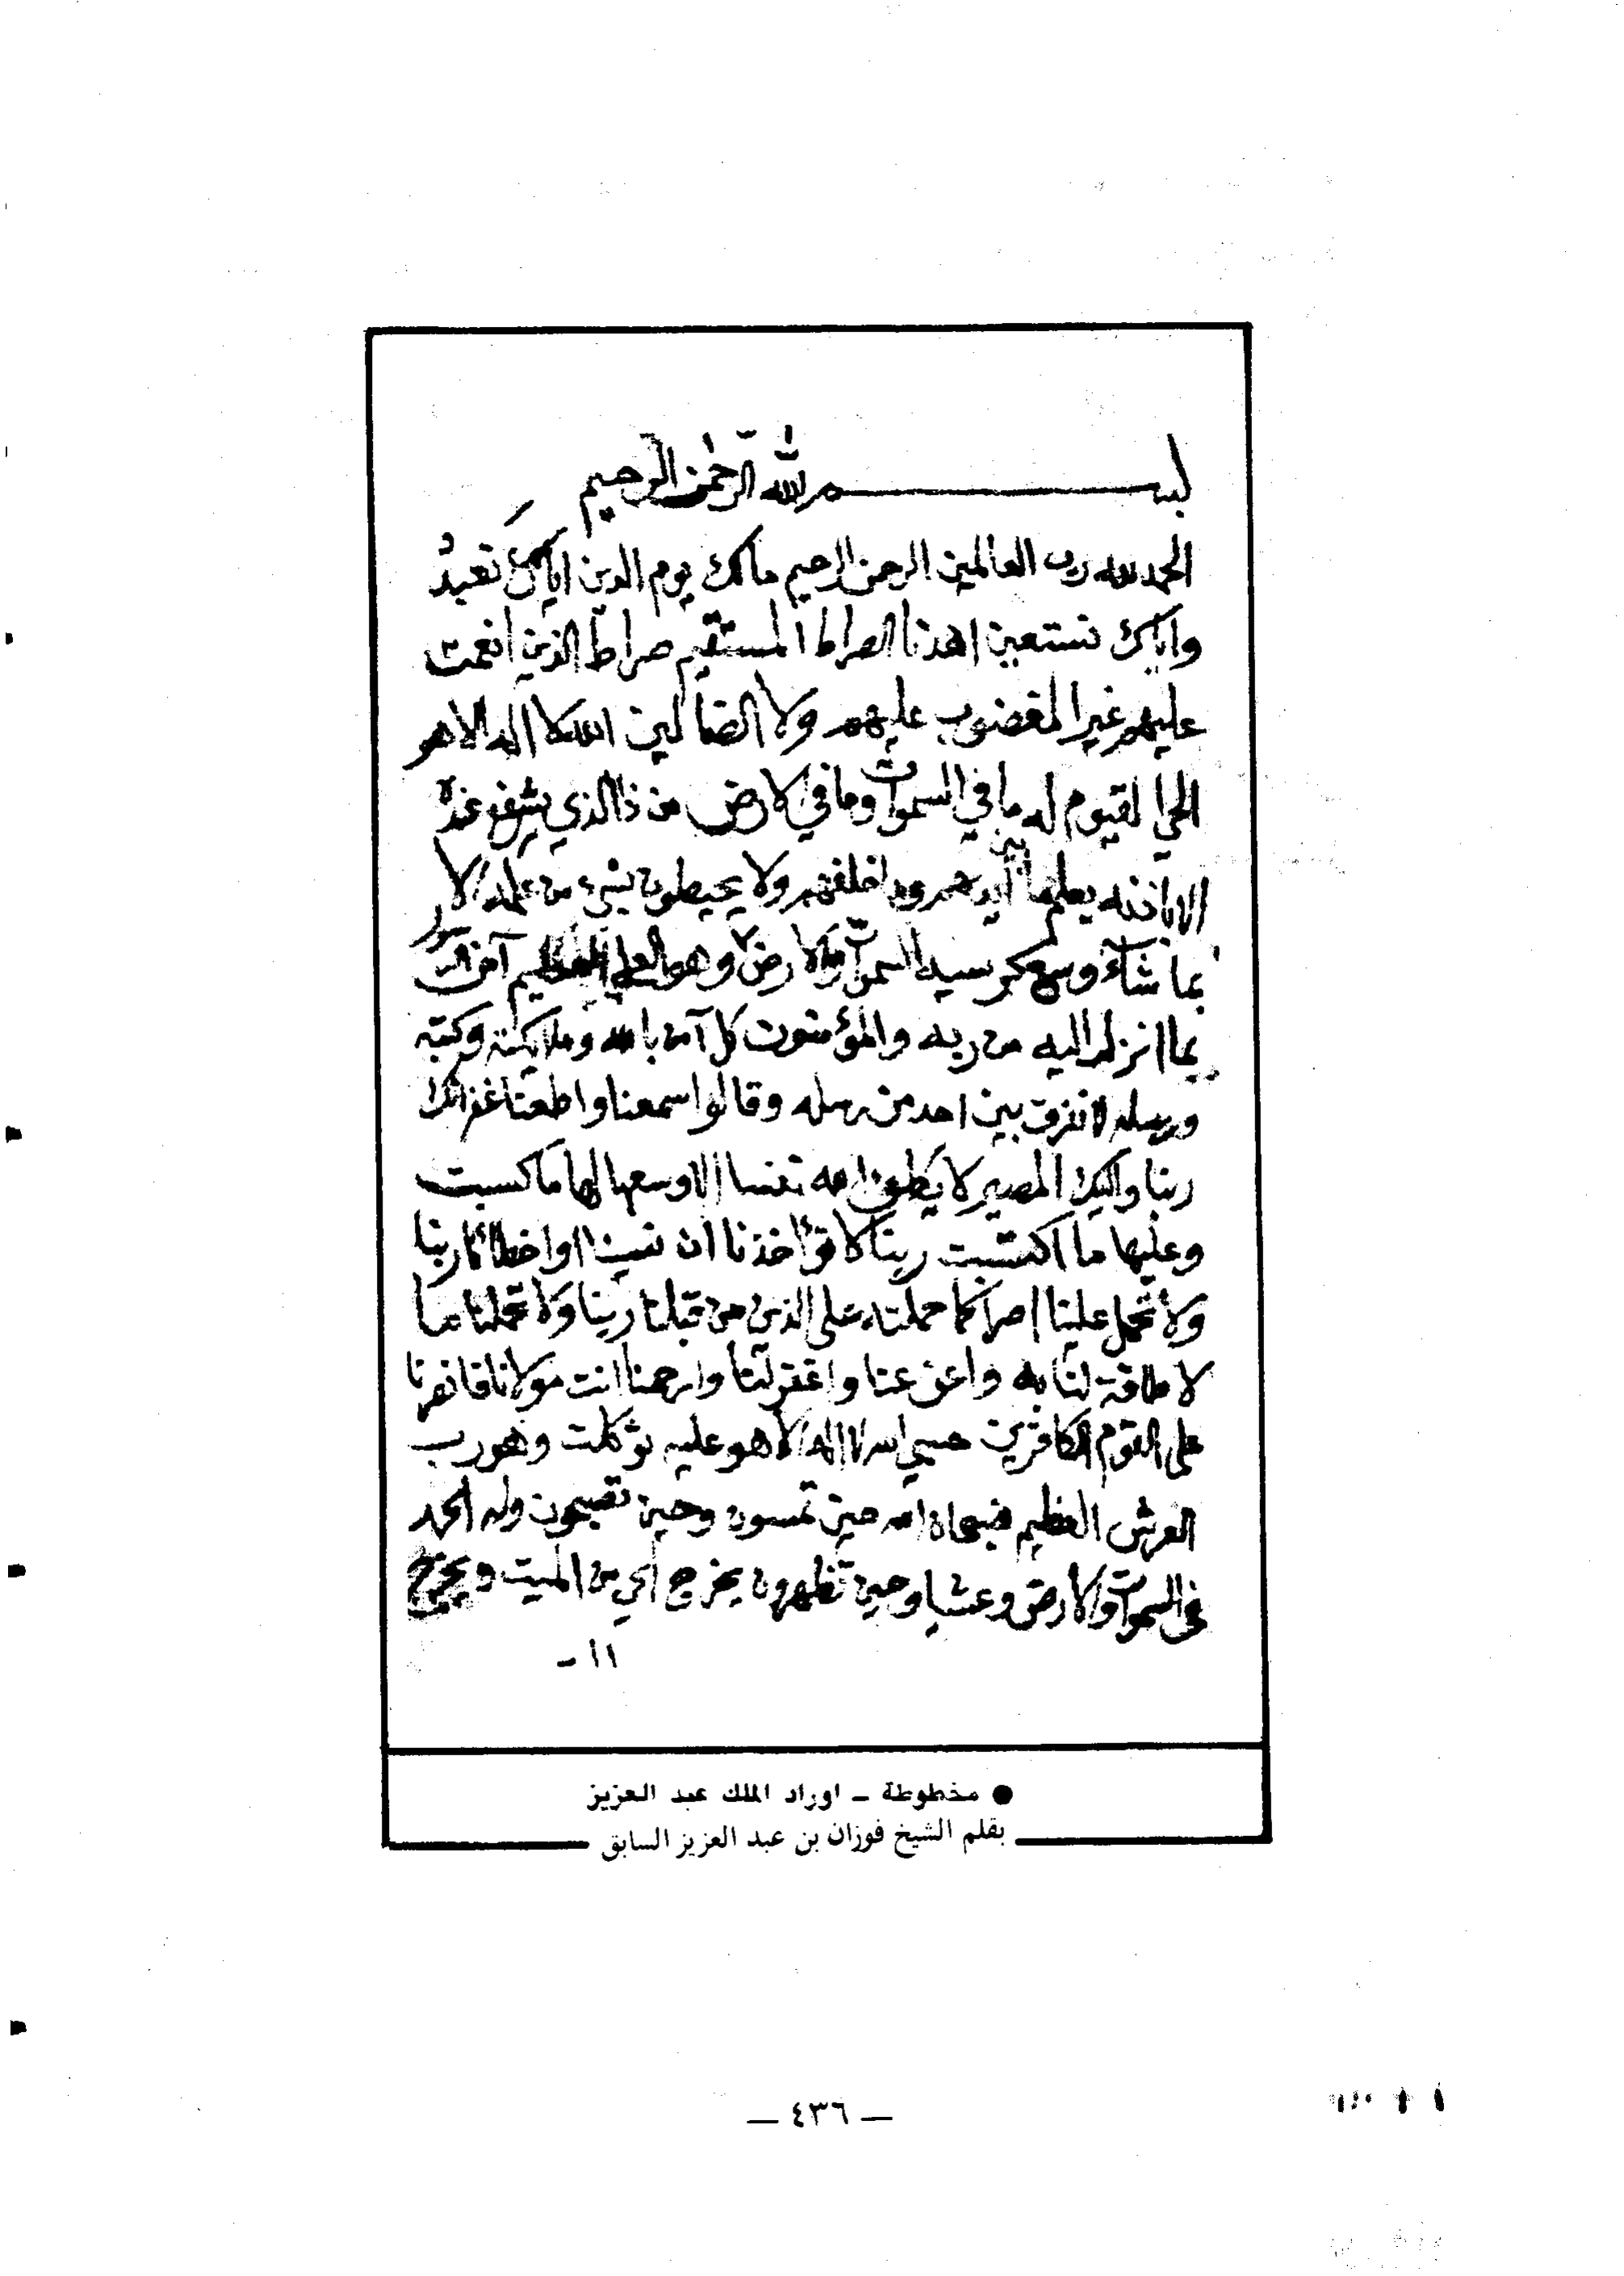 بسم الله الرحمن الرحيم
الحمد لله رب العالمين الرحمن الرحيم مالك يوم الدين اياك نعبد
واياك نستعين اهدنا الصراط المستقيم صراط الذين انعمت
عليهم غير المغضوب عليهم ولا الضالين الله لا اله الا هو
الحي القيوم له ما في السموات وما في الارض من ذا الذي يشفع عنده
الا باذنه يعلم ما بين ايديهم وما خلفهم ولا يحيطون بشيء من علمه الا
بما شاء وسع كرسيه السموات والارض وهو العلي العظيم آمن الرسول
بما انزل اليه من ربه والمؤمنون كل آمن بالله وملايكته وكتبه
ورسله لا نفرق بين احد من رسله وقالوا سمعنا واطعنا غفرانك
ربنا واليك المصير لا يكلف الله نفسا الا وسعها لها ما كسبت
وعليها ما اكتسبت ربنا لا تؤاخذنا ان نسينا او اخطأنا ربنا
ولا تحمل علينا اصرا كما حملته على الذين من قبلنا ربنا ولا تحملنا ما
لا طاقة لنا به واعف عنا واغفر لنا وارحمنا انت مولانا فانصرنا
على القوم الكافرين حسبي الله لا اله الا هو عليه توكلت وهو رب
العرش العظيم فسبحان الله حين تمسون وحين تصبحون وله الحمد
في السموات والارض وعشيا وحين تظهرون يخرج الحي من الميت ويخرج
١١ -
● مخطوطة - اوراد الملك عبد العزيز
بقلم الشيخ فوزان بن عبد العزيز السابق
— ٤٣٦ —